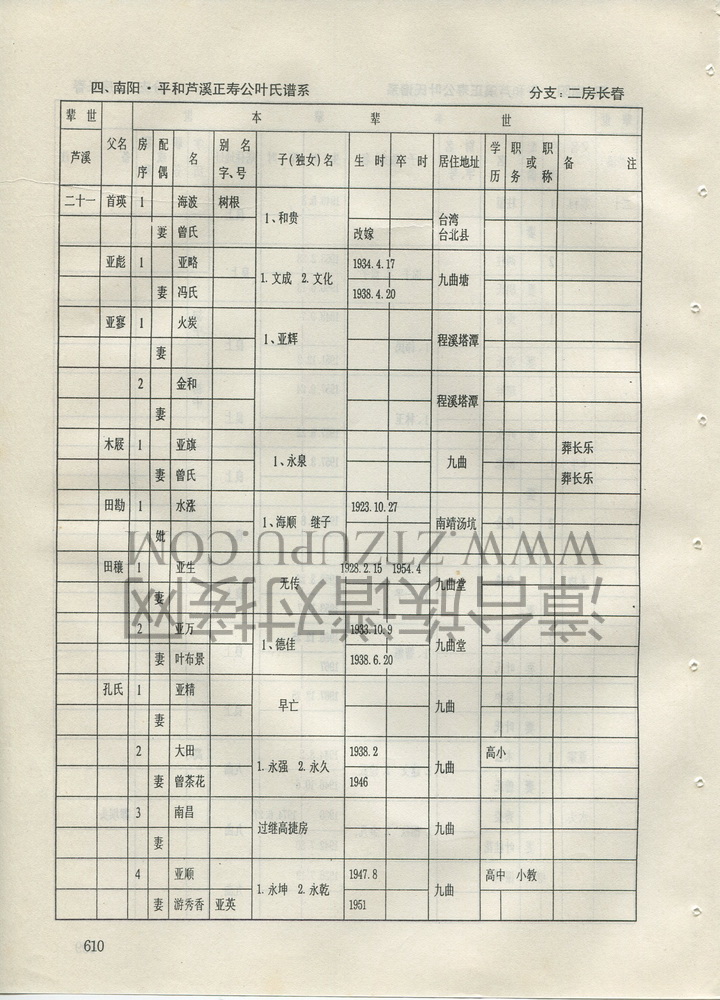 四、南阳·平和芦溪正寿公叶氏谱系 分支：二房长春
辈世 本 辈 世
芦溪 父名 房序 配偶 名 别名字、号 子(独女)名 生时 卒时 居住地址 学历 职务 或 职称 备注
二十一 首瑛 1 海波 树根 1、和贵 台湾台北县
妻 曾氏 改嫁
亚彪 1 亚略 1. 文成 2. 文化 1934.4.17 九曲塘
妻 冯氏 1938.4.20
亚寥 1 火炭 1、亚辉 程溪塔潭
妻
2 金和 程溪塔潭
妻
木屐 1 亚旗 1、永泉 九曲 葬长乐
妻 曾氏 葬长乐
田勘 1 水涨 1、海顺 继子 1923.10.27 南靖汤坑
妣
田穰 1 亚生 无传 1928.2.15 1954.4 九曲堂
妻
2 亚万 1、德佳 1933.10.9 九曲堂
妻 叶布景 1938.6.20
孔氏 1 亚精 早亡 九曲
妻
2 大田 1. 永强 2. 永久 1938.2 九曲 高小
妻 曾茶花 1946
3 南昌 过继高捷房 九曲
妻
4 亚顺 1. 永坤 2. 永乾 1947.8 九曲 高中 小教
妻 游秀香 亚英 1951
610
WWW.ZTZUPU.COM
漳台族谱对接网